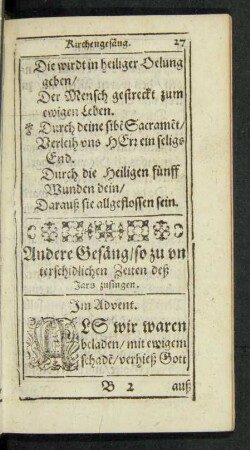 Kirchengesäng. 27
Die wirdt in heiliger Oelung
geben/
Der Mensch gestreckt zum
ewigen Leben.
* Durch deine sibẽ Sacramẽt/
Verleih vns HErr ein seligs
End.
Durch die Heiligen fünff
Wunden dein/
Darauß sie allgeflossen sein.
Andere Gesäng/so zu vn
terschidlichen Zeiten deß
Jars zusingen.
Im Advent.
ALS wir waren
beladen/mit ewigem
schadẽ/verhieß Gott
B 2 auß